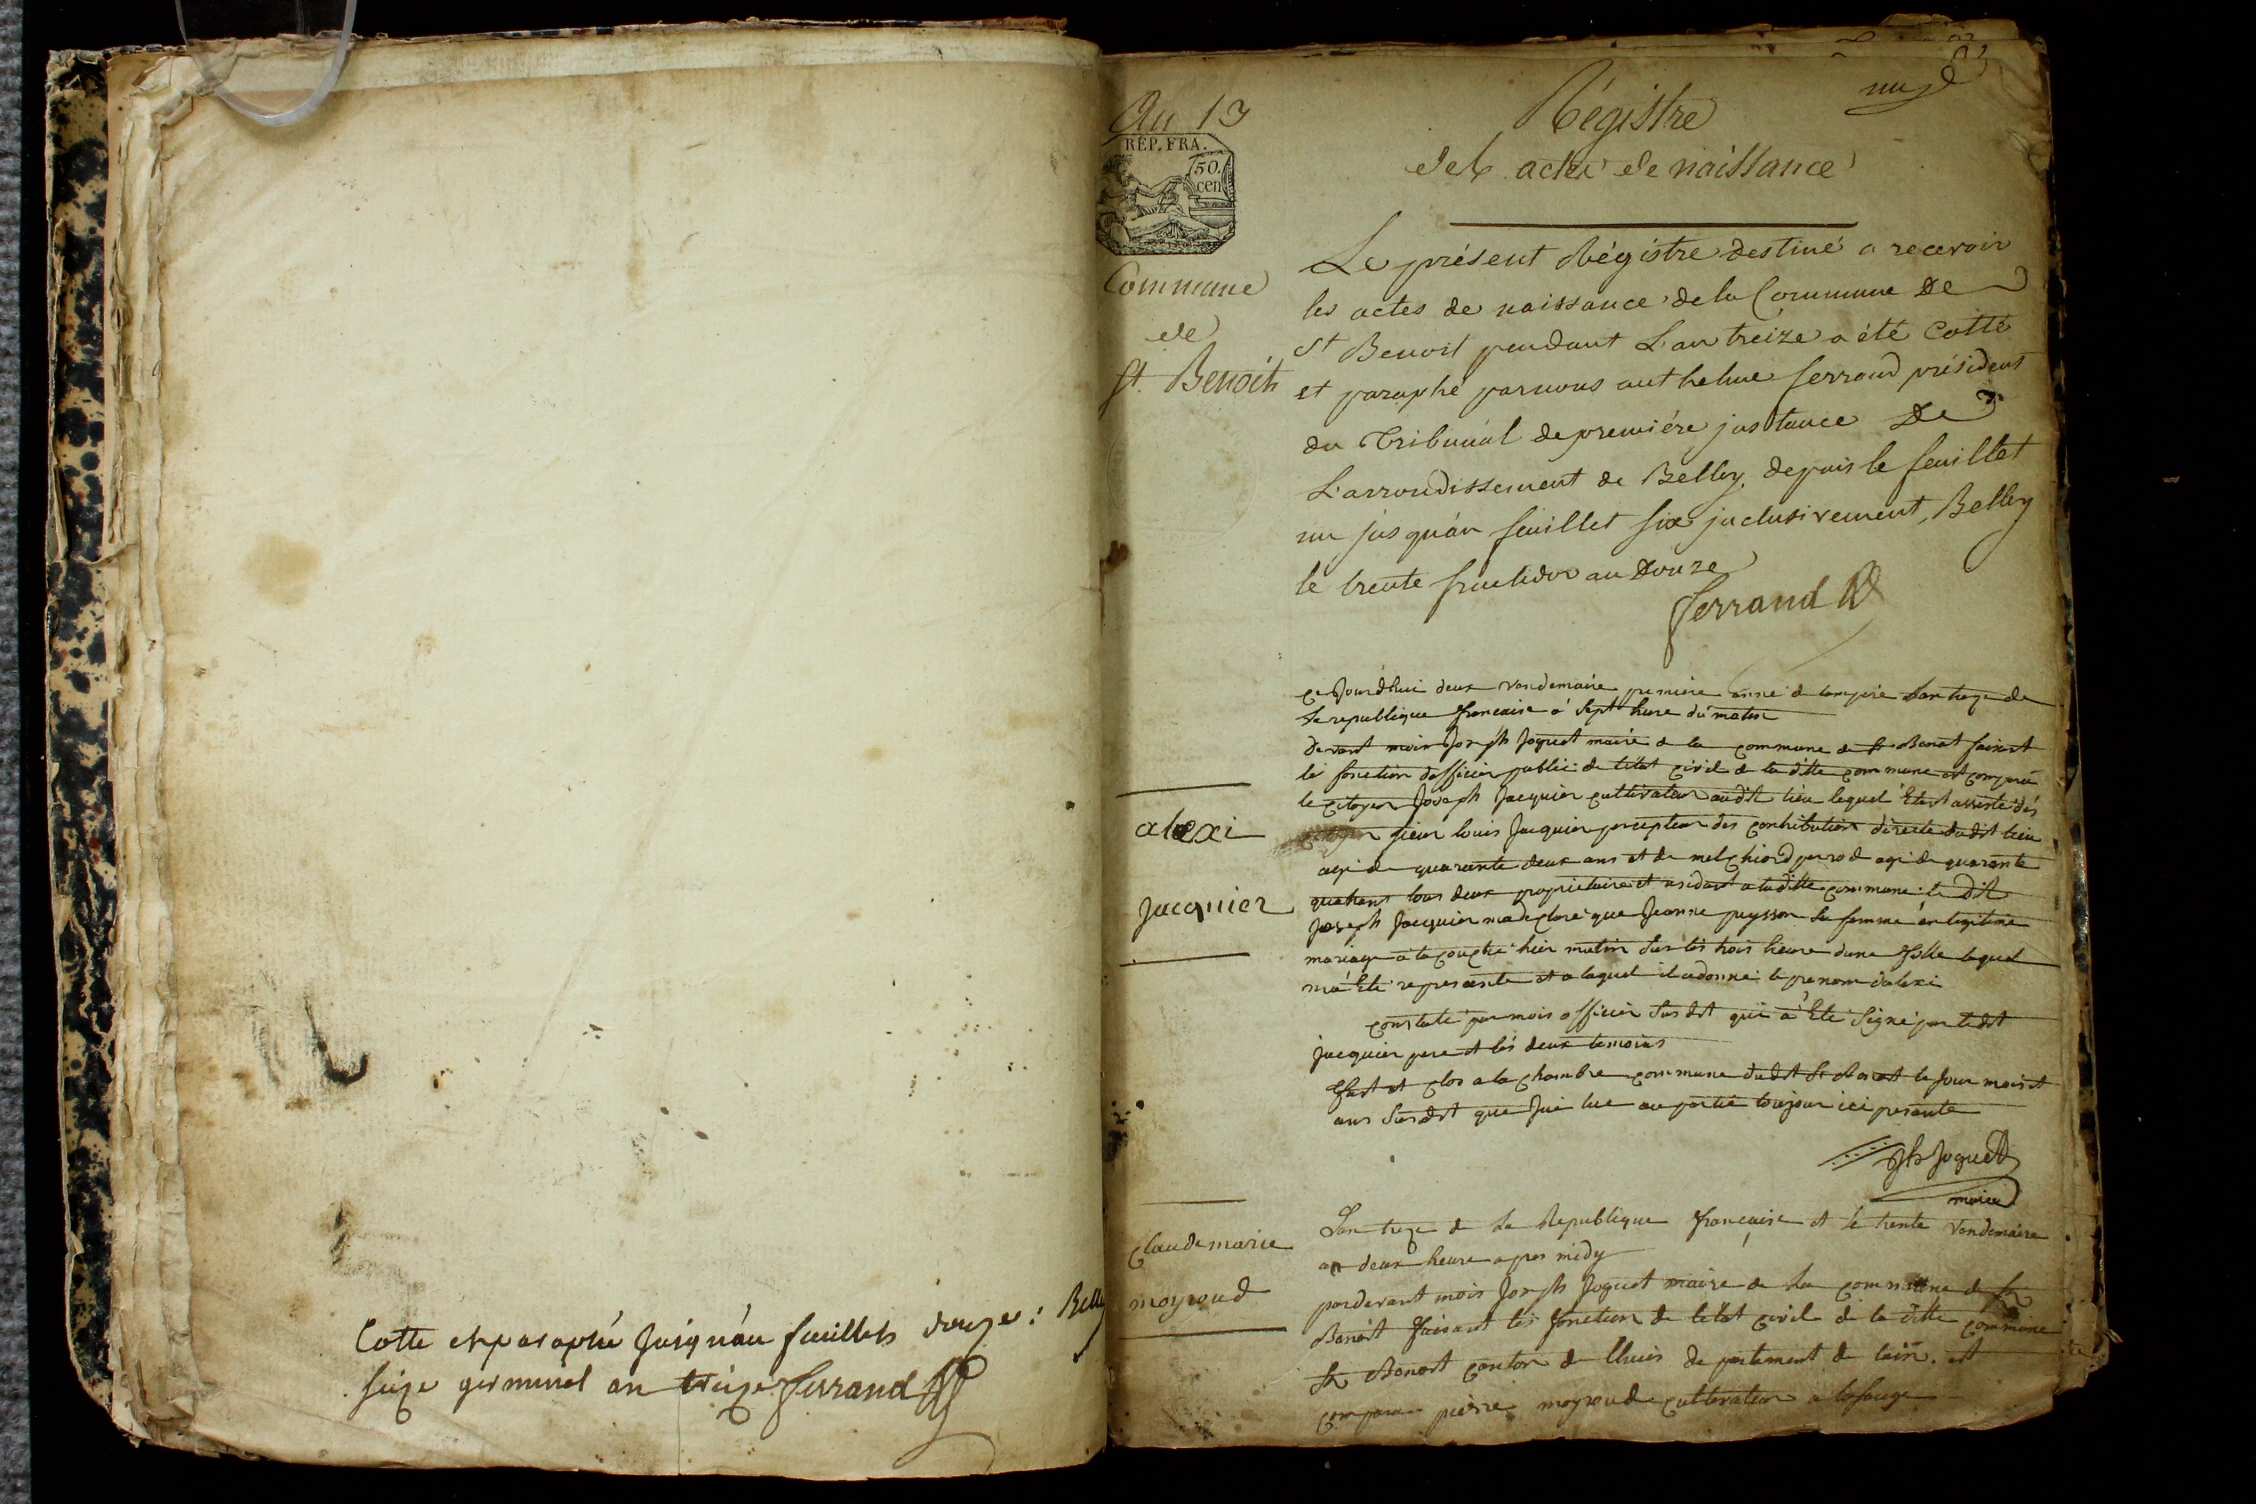 Cotte et paraphé jusqu'au feuillets douze : Belley
seize germinal an treize ferrand
An 13
REP. FRA.
50.
cen
Commune
de
St. Benoit
Régistre
des actes de naissance
Le présent Régistre destiné a recevoir
les actes de naissance de la Commune De
St Benoit pendant L'an treize a été Cotté
et paraphé par nous anthelme ferrand président
du Tribunal de premiére jnstance De
L'arrondissement de Belley, depuis le feuillet
un jusqu'au feuillet six jnclusivement, Belley
le trente fructidor an Douze
ferrand
alexi
jacquier
ce Jourdhui deux vandemaire premiere anné de lampire Lan treze de
La republique francaise a sept heure du matin
devant mois Joseph Joguet maire de la commune de St Benoit faisant
les fonction dofficier public de letat civil de la ditte commune est comparu
le citoyen Joseph Jacquier cultivateur audit lieu lequel Etant assisté des
sieur louis Jacquier percepteur des contribution directe dudit lieu
agé de quarante deux ans et de melchiord perrod agé de quarante
quatrans tous deux proprietaire et residant a laditte commune le dit
Joseph Jacquier ma declaré que Jeanne peysson sa femme en legitime
mariage a la couché hier matin sur les trois heure dune fille laquel
ma Eté represanté et a laquel il a donné le prenom dalexi
constaté par mois officier susdit qui a Eté signé par ledit
jacquier pere et les deux temoins
fait et clos a la chambre commune dudit St Benoit le jour mois et
ans susdit que Jai lue au partie toujour ici presante
Jh Joguet
maire
claudemarie
moyroud
Lan treze de La Republique francaise et le trente vandemaire
a deux heure apres midy
pardevant mois Joseph Joguet maire de La commune de St
Benoit faisant les fonction de letat civil de la ditte commune
St Benoit canton de lhuis departement de lain. est
comparu pierre moyroud cultivateur a